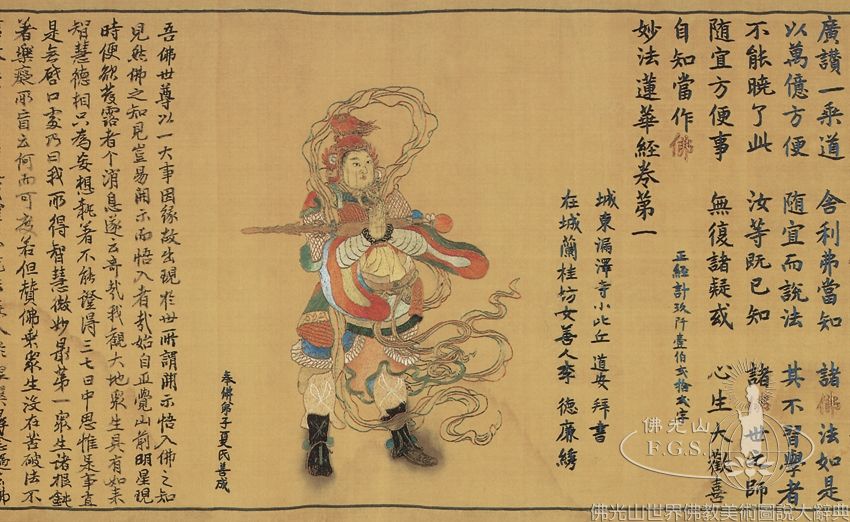 廣讚一乘道 舍利弗當知 諸佛法如是
以萬億方便 隨宜而說法 其不習學者
不能曉了此 汝等既已知 諸佛世之師
隨宜方便事 無復諸疑惑 心生大歡喜
自知當作佛
正經計玖阡壹伯弍拾弍字
妙法蓮華經卷第一
城東漏澤寺小比丘 道安 拜書
在城蘭桂坊女善人李 德廉 綉
奉佛弟子夏氏善成
吾佛世尊以一大事因緣故出現於世所謂開示悟入佛之知
見然佛之知見豈易開示而悟入者哉始自正覺山前明星現
時便欲發露者个消息遂云奇哉我觀大地眾生具有如來
智慧德相只為妄想執著不能證得三七日中思惟是事直
是無啓口處乃曰我所得智慧微妙最第一眾生諸根鈍
著樂癡所盲云何而可度若但讚佛乘眾生沒在苦破法不
佛光山
F.G.S.
佛光山世界佛教美術圖說大辭典